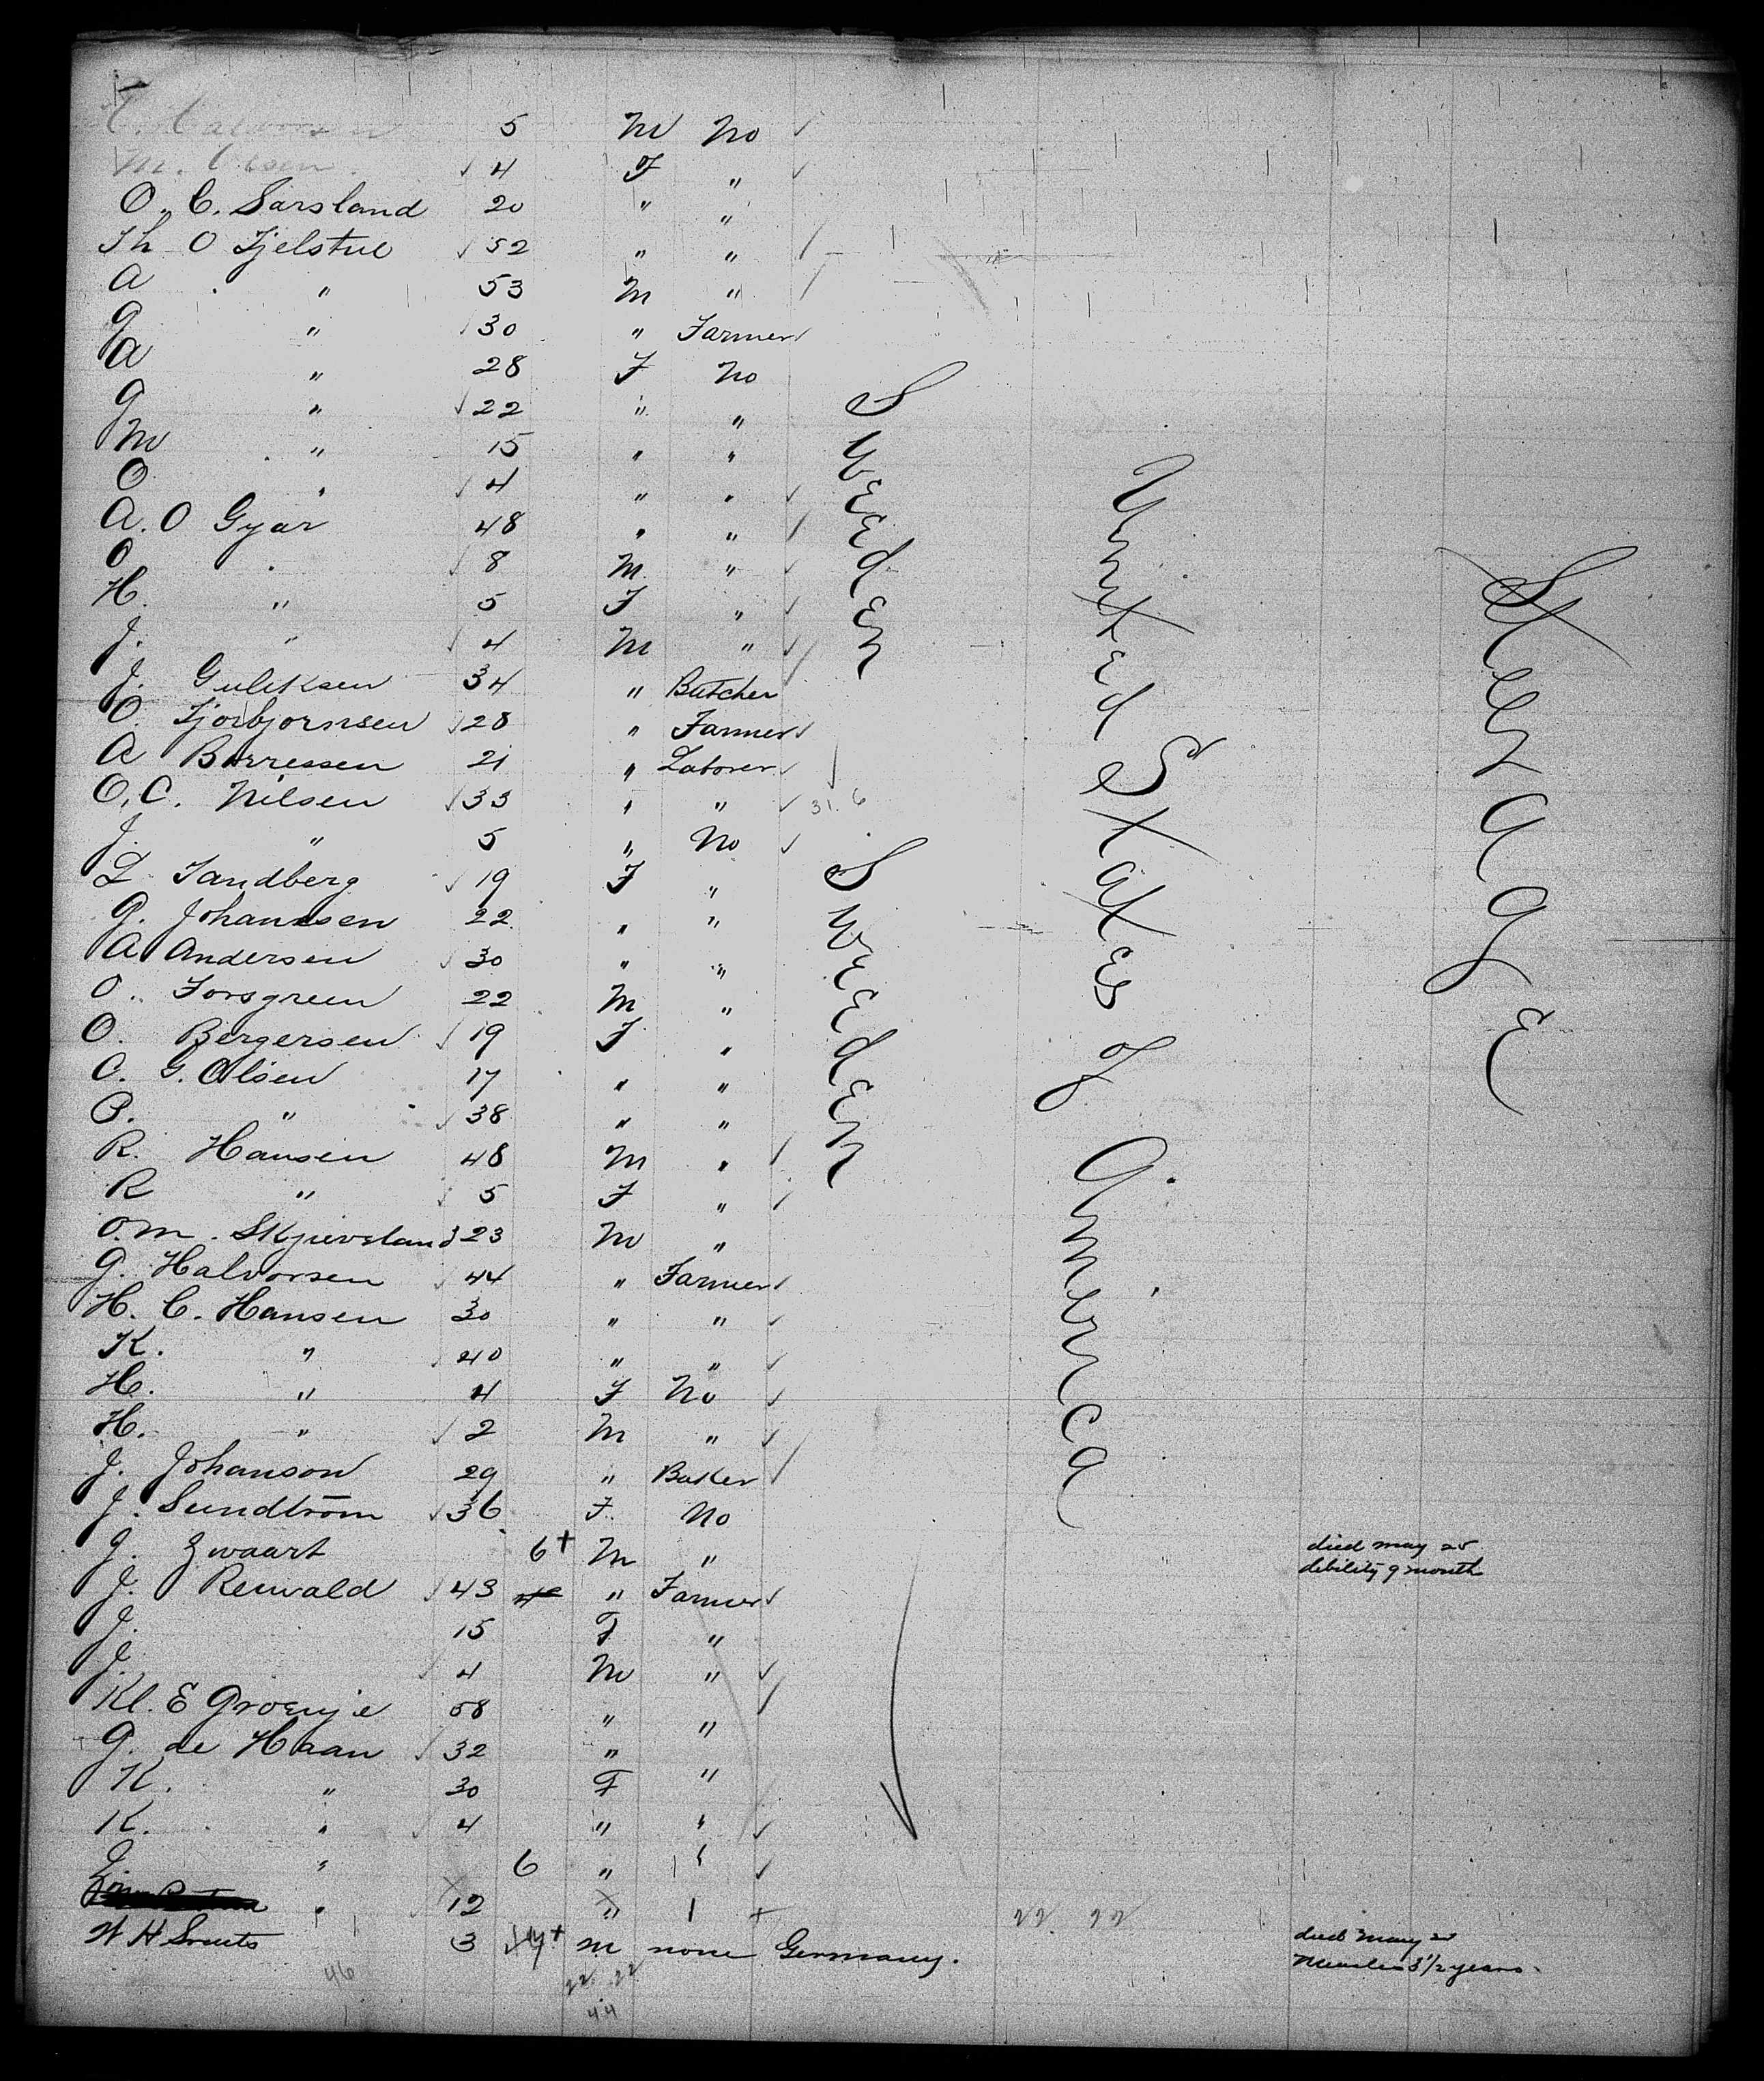 T. Halvorsen 5 M No
M. Olsen 4 F "
O. C. Sarsland 20 " "
Th O Fjelstul 52 " "
A " 53 M "
G " 30 " Farmer
A " 28 F No
G " 22 " "
M " 15 " "
O " 4 " "
A. O Gyar 48 " "
O " 8 M "
H. " 5 F "
J. " 4 M "
J. Guliksen 34 " Butcher
O. Tjorbjornsen 28 " Farmer
A Borressen 21 " Laborer
O. C. Nilsen 33 " " 31. 6
J. " 5 " No
L Sandberg 19 F "
G. Johannsen 22 " "
A Andersen 30 " "
O. Forsgreen 22 M "
O. Bergersen 19 F "
C. G. Olsen 17 " "
B. " 38 " "
R. Hansen 48 M "
R " 5 F "
O. M. Skjievsland 23 M "
G. Halvorsen 44 " Farmer
H. C. Hansen 30 " "
K. " 40 " "
H. " 4 F No
H. " 2 M "
J. Johanson 29 " Baker
J. Sundtröm 36 F No
J. Zwaart 6+ M " died may 25
debility 9 month
J. Rewald 43 " Farmer
J. 15 F "
J. 4 M "
Kl. E Groenje 58 " "
G. de Haan 32 " "
K. " 30 F "
K. " 4 " "
" 6 " "
" 12 "
W H Smuts 3 M none Germany. died May
Measles 3 1/2 years
Sweden
Sweden
United States of America
Steerage
22 22
46
22 22
44